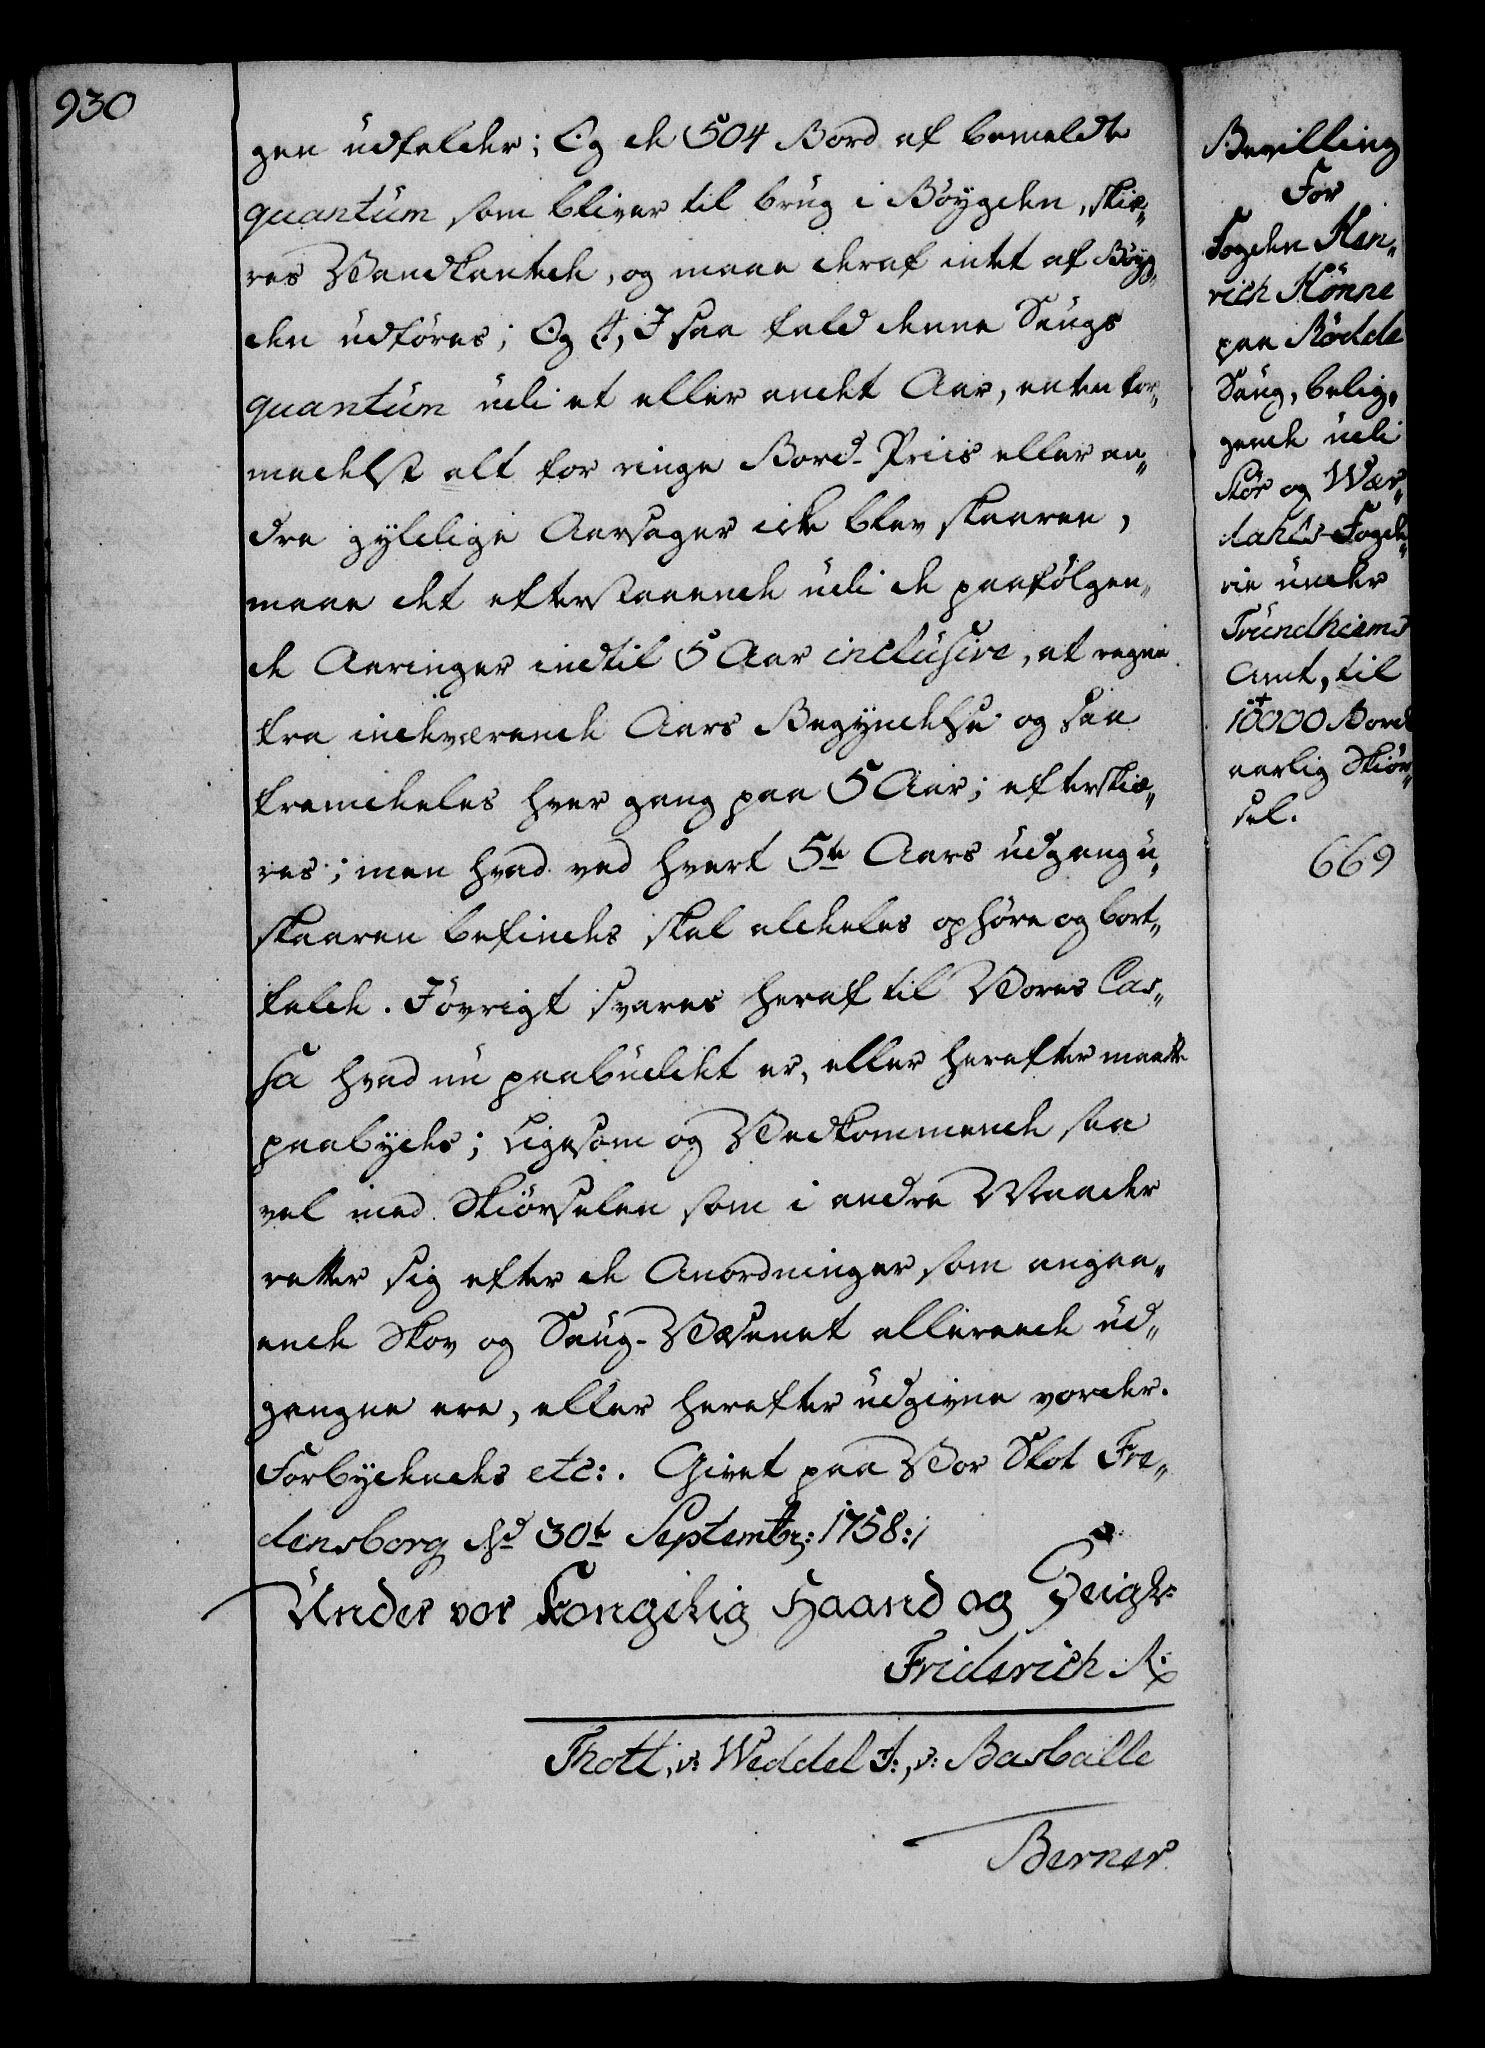 930
gen udfalder; Og de 504 Bord af bemeldte
quantum som bliver til brug i Bøygden, skiæ,,
res Vandkantede, og maae deraf intet af Bøyg,,
den udføres; Og 4, I saa fald denne Saugs
quantum udi et eller andet Aar, enten for,,
medelst alt for ringe Bord-Priis eller an,,
dre gyldige Aarsager icke blev skaaren,
maae det efterstaaende udi de paafølgen,,
de Aaringer indtil 5 Aar inclusive, at regne
fra indeværende Aars Begyndelse og saa
fremdeles hver gang paa 5 Aar; efterskiæ,,
res; men hvad ved hvert 5te Aars udgang u,,
skaaren befindes skal aldeles ophøre og bort,,
falde. Iøvrigt svares heraf til Vores Cas,,
sa hvad nu paabudet er, eller herefter maatte
paabydes; Ligesom og Vedkommende saa
vel med Skiørselen som i andre Maader
retter sig efter de Anordninger som angaa,,
ende Skov og Saug-Væsenet allerede ud,,
gangne ere, eller herefter udgivne vorder.
Forbydendes etc:. Givet paa Vor Slot Fre,,
densborg dend 30te Septembr: 1758:/
Under vor Kongelig Haand og Zeigl:
Friderich R:
Thott, v: Weddel F:, v: Basballe
Berner
Bevilling
For
Fogden Hen,,
rich Hönne
paa Rödde
Saug, belig,,
gende udi
Stör og Wær,,
dahls-Fogde,,
rie under
Trundhiems
Amt, til
10000 Bord
aarlig Skiør,,
sel.
669